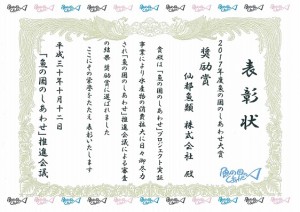 表彰状
2017年度魚の国のしあわせ大賞
奨励賞
仙都魚類 株式会社 殿
貴殿は「魚の国のしあわせ」プロジェクト実証
事業により水産物の消費拡大に日々御尽力
され「魚の国のしあわせ」推進会議による審査
の結果 奨励賞に選ばれました
ここにその栄誉をたたえ 表彰いたします
平成三十年十月十二日
「魚の国のしあわせ」推進会議
魚の国の
しあわせ